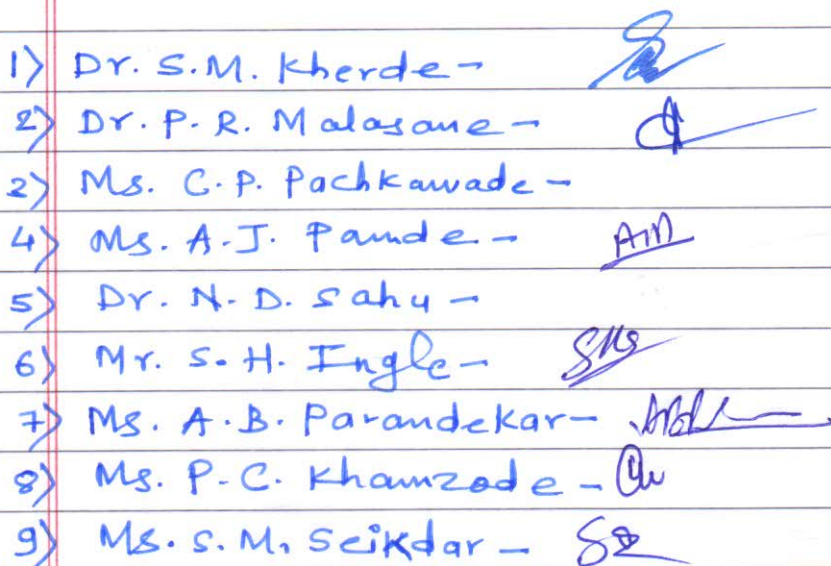 1) Dr. S.M. Kherde-
2) Dr. P. R. Malasane -
2) Ms. C. P. Pachkawade -
4) Ms. A. J. Pamde -
5) Dr. N. D. Sahu -
6) Mr. S. H. Ingle -
7) Ms. A. B. Parandekar-
8) Ms. P. C. Khamzode -
9) Ms. S. M. Seikdar -